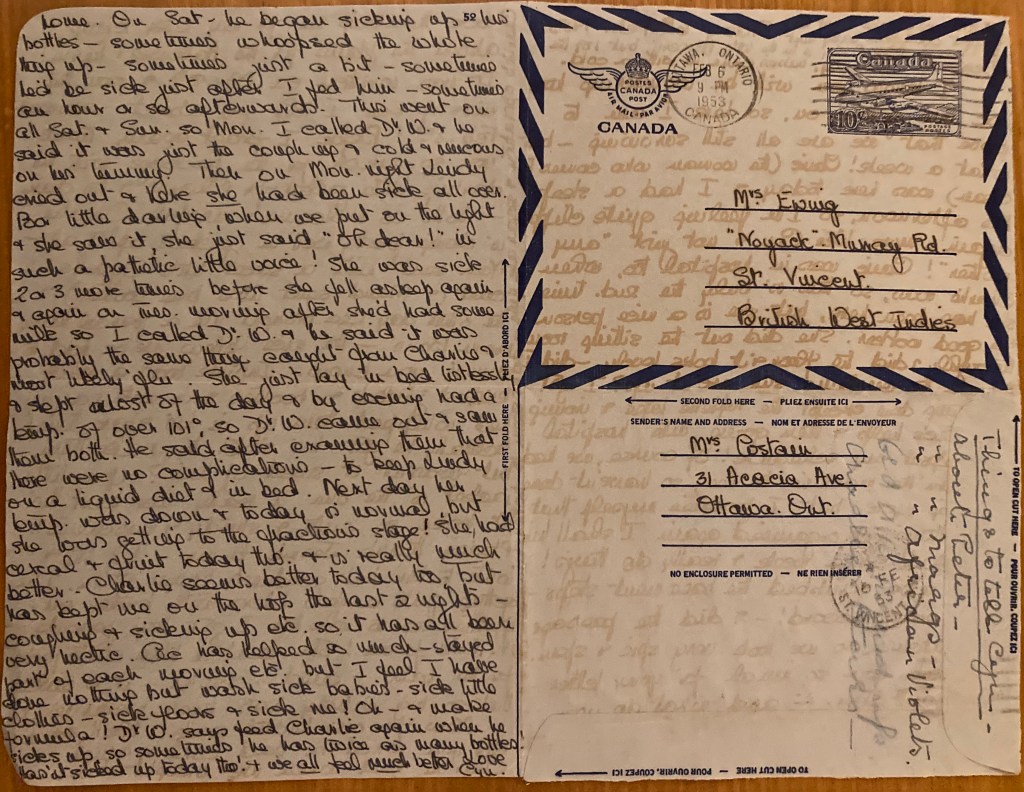 home. On Sat - he began sicking up his
52
bottles - sometimes whoopsed the whole
thing up - sometimes just a bit - sometimes
he'd be sick just after I fed him - sometimes
an hour or so afterwards. This went on
all Sat. & Sun. so Mon. I called Dr. W. & he
said it was just the coughing & cold & mucous
on his tummy. Then on Mon. night Lindy
cried out & here she had been sick all over.
Poor little darling, when we put on the light
& she saw it, she just said "Oh dear!" in
such a pathetic little voice! She was sick
2 or 3 more times before she fell asleep again
& again on Tues. morning after she'd had some
milk so I called Dr. W. & he said it was
probably the same thing caught from Charlie &
most likely flu. She just lay in bed listlessly
& slept most of the day & by evening had a
temp. of over 101°, so Dr. W. came out & saw
them both. He said after examining them that
there were no complications - to keep Lindy
on a liquid diet & in bed. Next day her
temp. was down & today is normal, but
she looks getting to the fractious stage! She had
cereal & fruit today tho', & is really much
better. Charlie seems better today too, but
has kept me on the hop the last 2 nights -
coughing & sicking up etc. so it has all been
very hectic. Cec has helped so much - stayed
part of each morning etc. but I feel I have
done nothing but wash sick babies - sick little
clothes - sick floors & sick me! Oh - & make
formula! Dr. W. says feed Charlie again when he
sicks up, so sometimes he has twice as many bottles!
Hasn't sicked up today tho'. & we all feel much better Love
Cyn.
FIRST FOLD HERE — PLIEZ D'ABORD ICI
POSTES
CANADA
POST
AIR MAIL · PAR AVION
CANADA
OTTAWA, ONTARIO
FEB 6
9 PM
1953
CANADA
Canada
10¢
Mrs Ewing
"Noyack". Murray Rd.
St. Vincent.
British West Indies
SECOND FOLD HERE — PLIEZ ENSUITE ICI
SENDER'S NAME AND ADDRESS — NOM ET ADRESSE DE L'ENVOYEUR
Mrs Costain
31 Acacia Ave
Ottawa. Ont.
NO ENCLOSURE PERMITTED — NE RIEN INSÉRER
ST. VINCENT
Things to tell Cyn -
about Peter -
" " mangs -
" " African Violets.
TO OPEN CUT HERE — POUR OUVRIR, COUPEZ ICI
TO OPEN CUT HERE — POUR OUVRIR, COUPEZ ICI